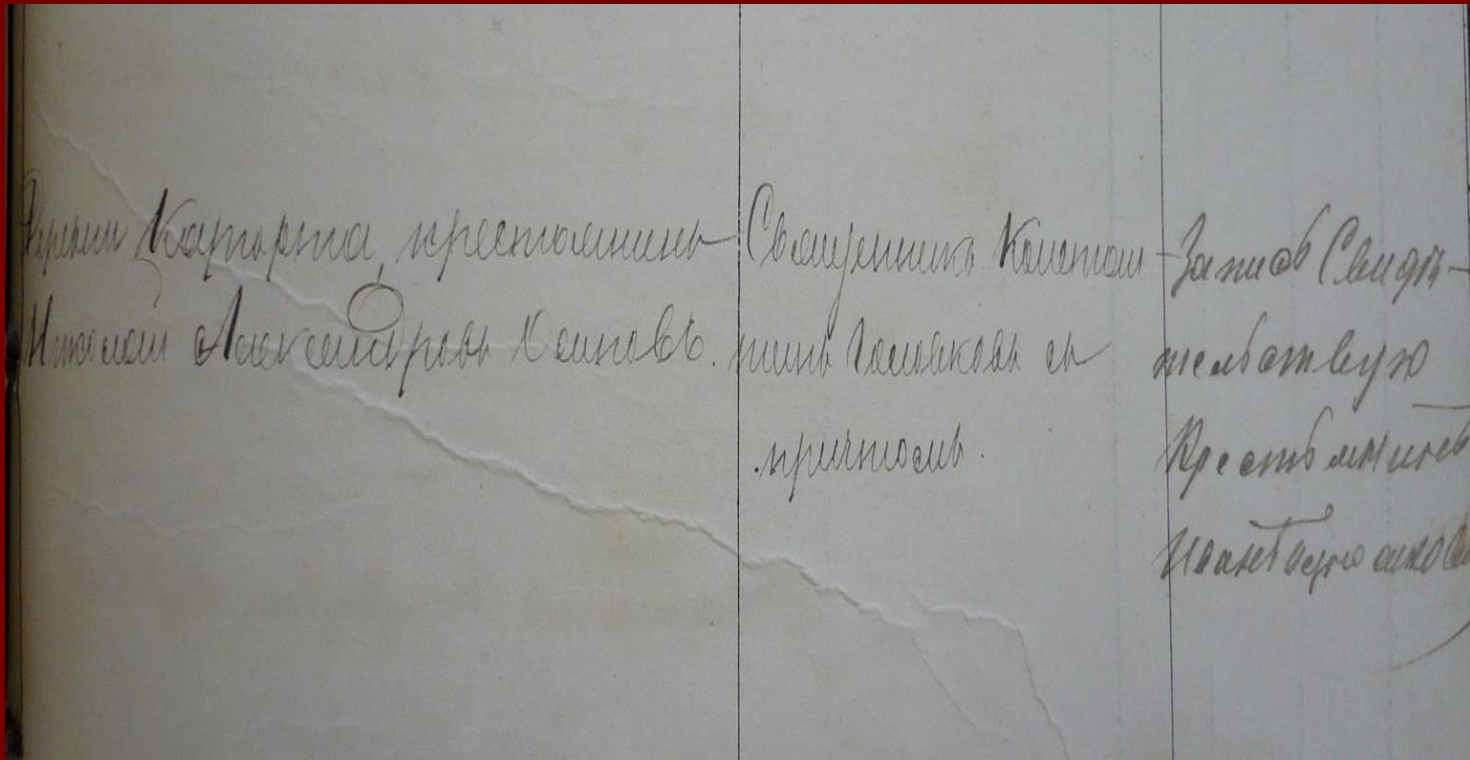 Деревни Карторта, крестьянинъ
Николай Александровъ
Священникъ Констан-
тинъ съ
причтомъ.
Запись Свидѣ-
тельствую
Крестьянинъ
Иванъ